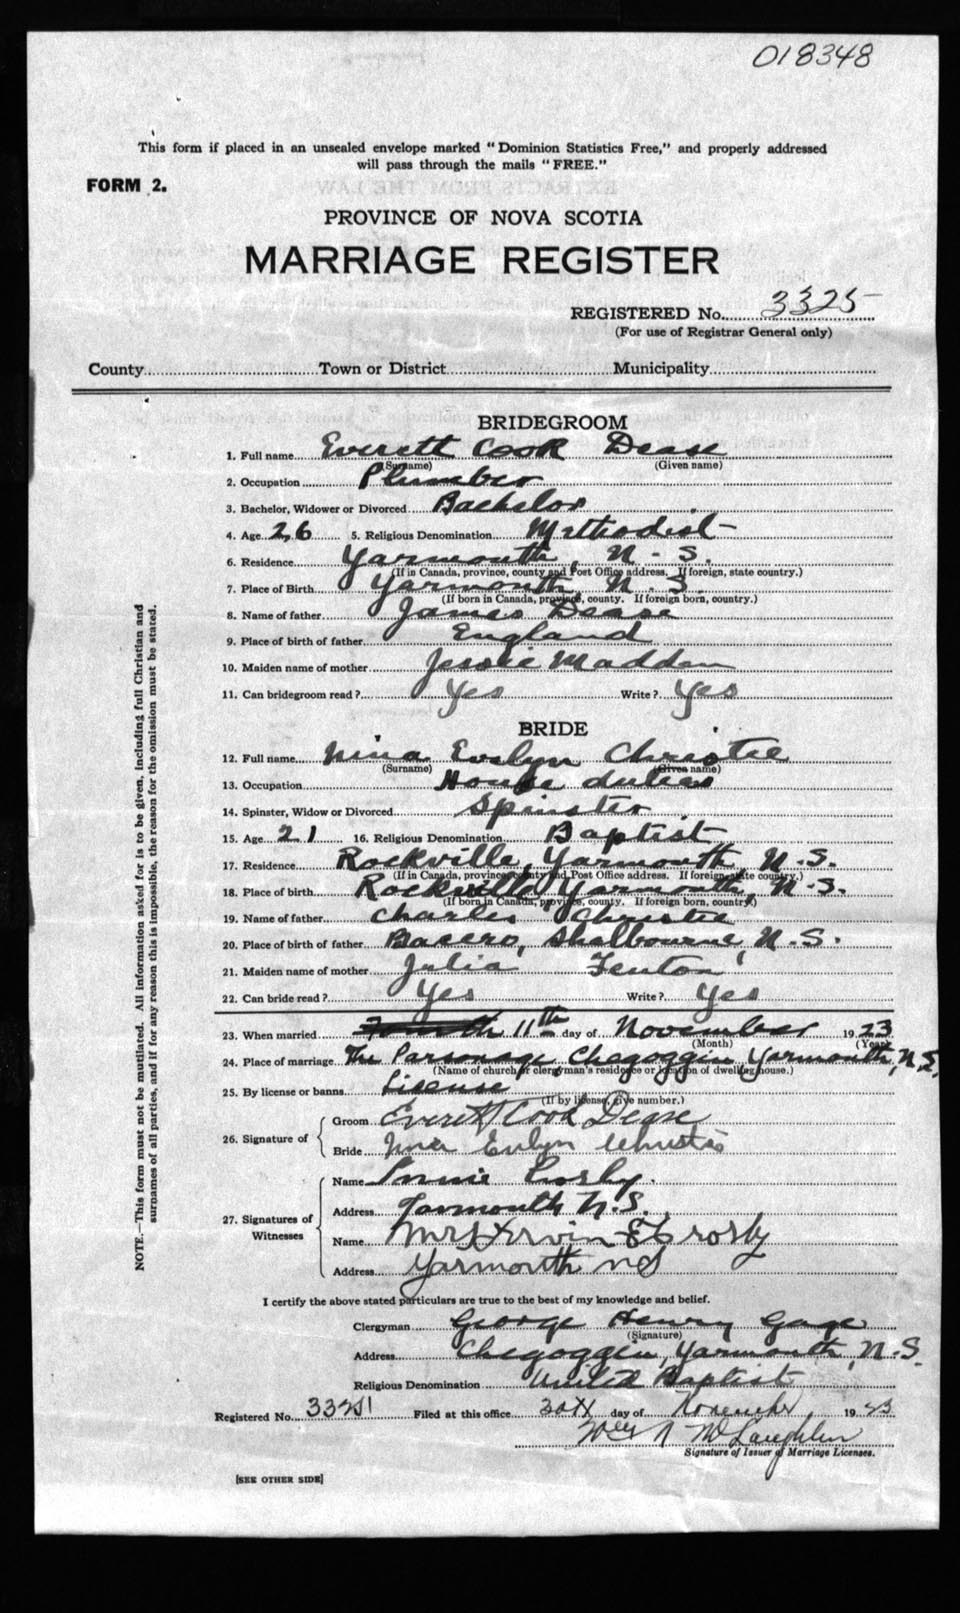 018348
This form if placed in an unsealed envelope marked "Dominion Statistics Free," and properly addressed
will pass through the mails "FREE."
FORM 2.
PROVINCE OF NOVA SCOTIA
MARRIAGE REGISTER
REGISTERED No. 3325
(For use of Registrar General only)
County Town or District Municipality
BRIDEGROOM
1. Full name Everett Cook Dease
(Surname) (Given name)
2. Occupation Plumber
3. Bachelor, Widower or Divorced Bachelor
4. Age 26 5. Religious Denomination Methodist
6. Residence Yarmouth, N.S.
(If in Canada, province, county and Post Office address. If foreign, state country.)
7. Place of Birth Yarmouth N.S.
(If born in Canada, province, county. If foreign born, country.)
8. Name of father James Dease
9. Place of birth of father England
10. Maiden name of mother Jessie Madden
11. Can bridegroom read? Yes Write? Yes
BRIDE
12. Full name Nina Evelyn Christie
(Surname) (Given name)
13. Occupation House duties
14. Spinster, Widow or Divorced Spinster
15. Age 21 16. Religious Denomination Baptist
17. Residence Rockville, Yarmouth, N.S.
(If in Canada, province, county and Post Office address. If foreign state country.)
18. Place of birth Rockville Yarmouth, N.S.
(If born in Canada, province, county. If foreign born, country.)
19. Name of father Charles Christie
20. Place of birth of father Baccro, Shelbourne, N.S.
21. Maiden name of mother Julia Fenton
22. Can bride read? Yes Write? Yes
23. When married Fourth 11th day of November 1923
(Month) (Year)
24. Place of marriage The Parsonage Chegoggin Yarmouth, N.S.
(Name of church or clergyman's residence or location of dwelling house.)
25. By license or banns License
(If by license, give number.)
26. Signature of
Groom Everett Cook Dease
Bride Nina Evelyn Christie
27. Signatures of Witnesses
Name Crosby
Address Yarmouth N.S.
Name Mrs Ervin E Crosby
Address Yarmouth NS
I certify the above stated particulars are true to the best of my knowledge and belief.
Clergyman George Henry Gage
(Signature)
Address Chegoggin, Yarmouth, N.S.
Religious Denomination United Baptist
Registered No. Filed at this office 30th day of November, 1923
McLaughlin
Signature of Issuer of Marriage Licenses.
[SEE OTHER SIDE]
NOTE.—This form must not be mutilated. All information asked for is to be given, including full Christian and
surnames of all parties, and if for any reason this is impossible, the reason for the omission must be stated.